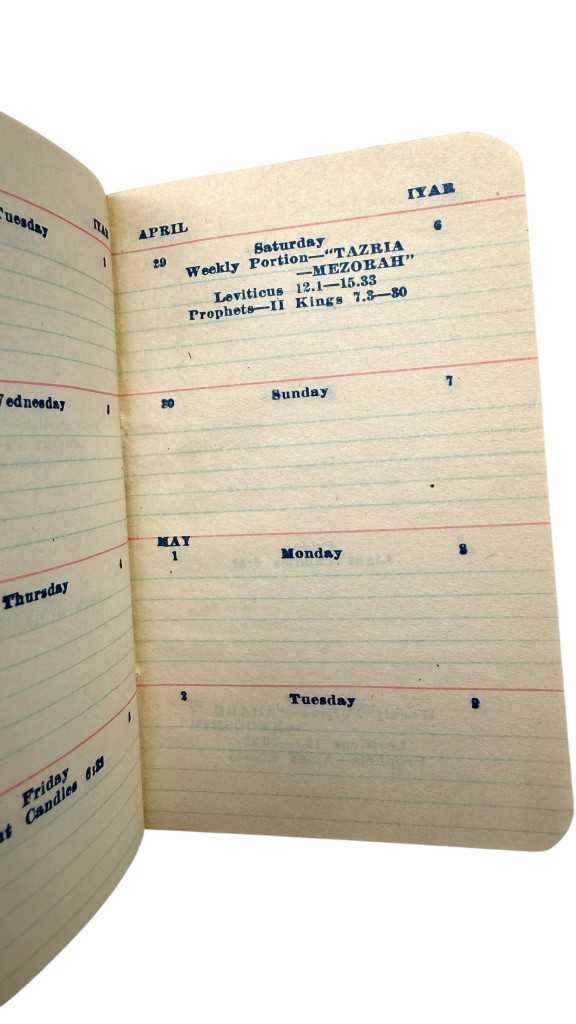 Tuesday IYAR
Wednesday 3
Thursday 4
5
Friday
ht Candles
APRIL IYAR
29 Saturday 6
Weekly Portion—“TAZRIA
—MEZORAH”
Leviticus 12.1—15.33
Prophets—II Kings 7.3—20
30 Sunday 7
MAY
1 Monday 8
2 Tuesday 9